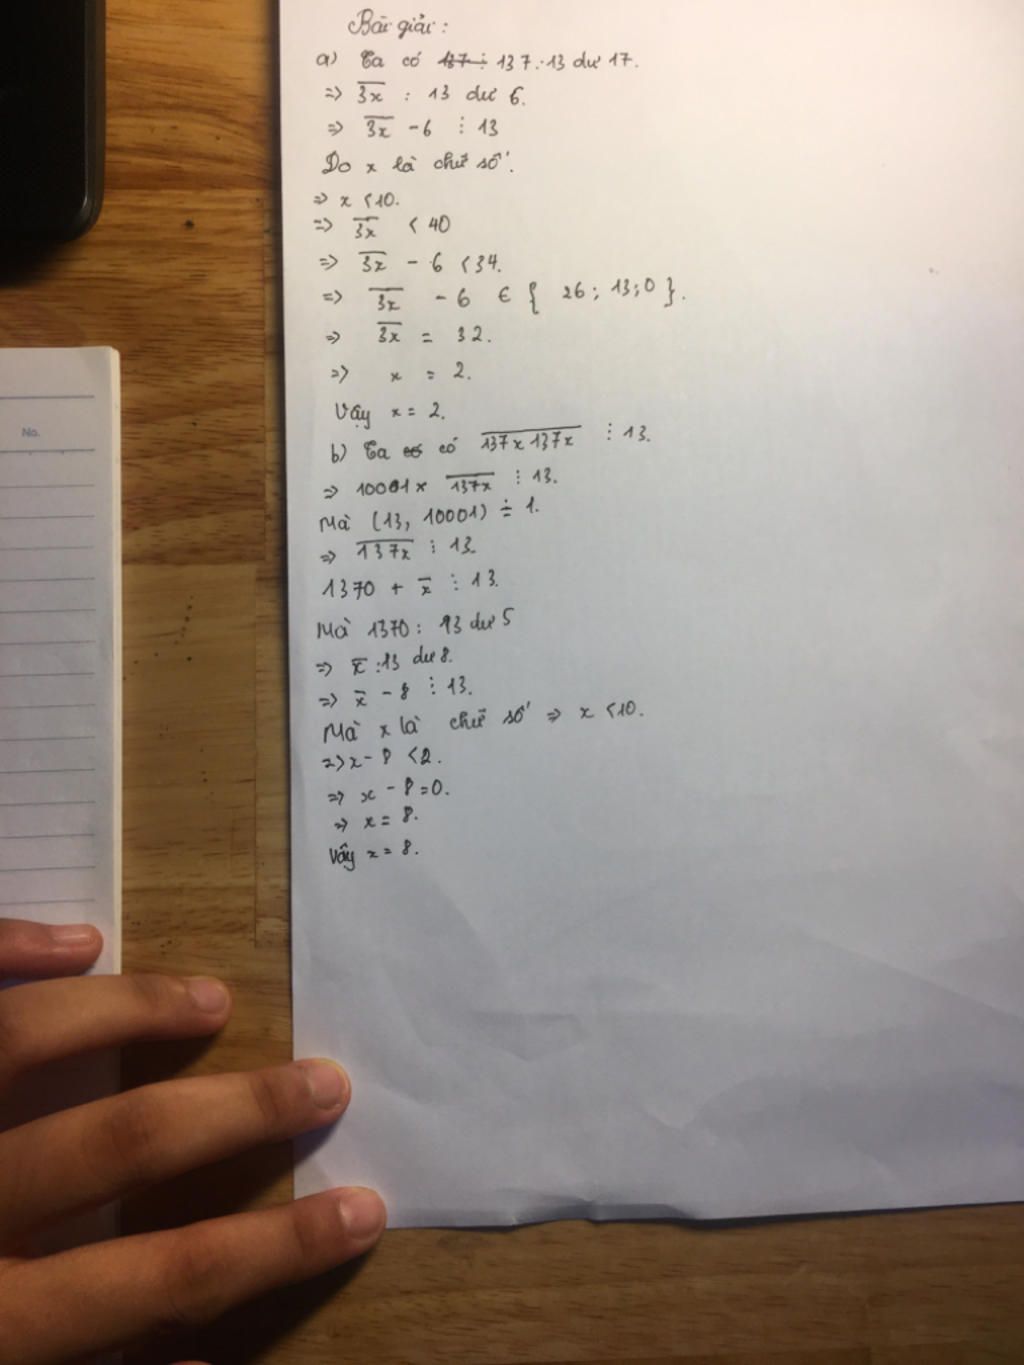 Bài giải:
a) Ta có 137 : 137 : 13 dư 17.
=> 3x : 13 dư 6.
=> 3x - 6 ⋮ 13
Do x là chữ số.
=> x < 10.
=> 3x < 40
=> 3x - 6 < 34.
=> 3x - 6 ∈ { 26; 13; 0 }.
=> 3x = 32.
=> x = 2.
Vậy x = 2.
b) Ta có có 137x137x ⋮ 13.
=> 10001 x 137x ⋮ 13.
Mà (13, 10001) = 1.
=> 137x ⋮ 13.
1370 + x ⋮ 13.
Mà 1370 : 13 dư 5
=> x : 13 dư 8.
=> x - 8 ⋮ 13.
Mà x là chữ số => x < 10.
=> x - 8 < 2.
=> x - 8 = 0.
=> x = 8.
Vậy x = 8.
No.